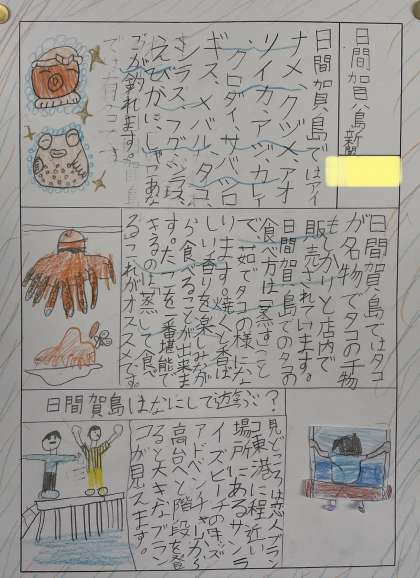 日間賀島新聞
日間賀島ではアイ
ナメ、クジメ、アオ
リイカ、アジ、カレイ
、クロダイ、サバ、シロ
ギス、メバル、タコ、
シラス、フグ、
えびかに、しゃこ、あな
ごが釣れます。
日間賀島ではタコ
が名物でタコの干物
もしっかりと店内で
販売されています。
日間賀島でのタコの
食べ方は「蒸す」こと
で、茹でタコの様にな
ります。焼くと香ば
しい香りを楽しみなが
ら食べることが出来ま
す。たこを一番堪能で
きるのは「蒸して食べ
る」これがオススメです。
日間賀島はなにして遊ぶ？
見どころは恋人ブラン
コ東港に程近い
場所にあるサンラ
イズビーチのキッズ
アドベンチャーから
高台へと階段を登
ると大きなブラン
コが見えます。